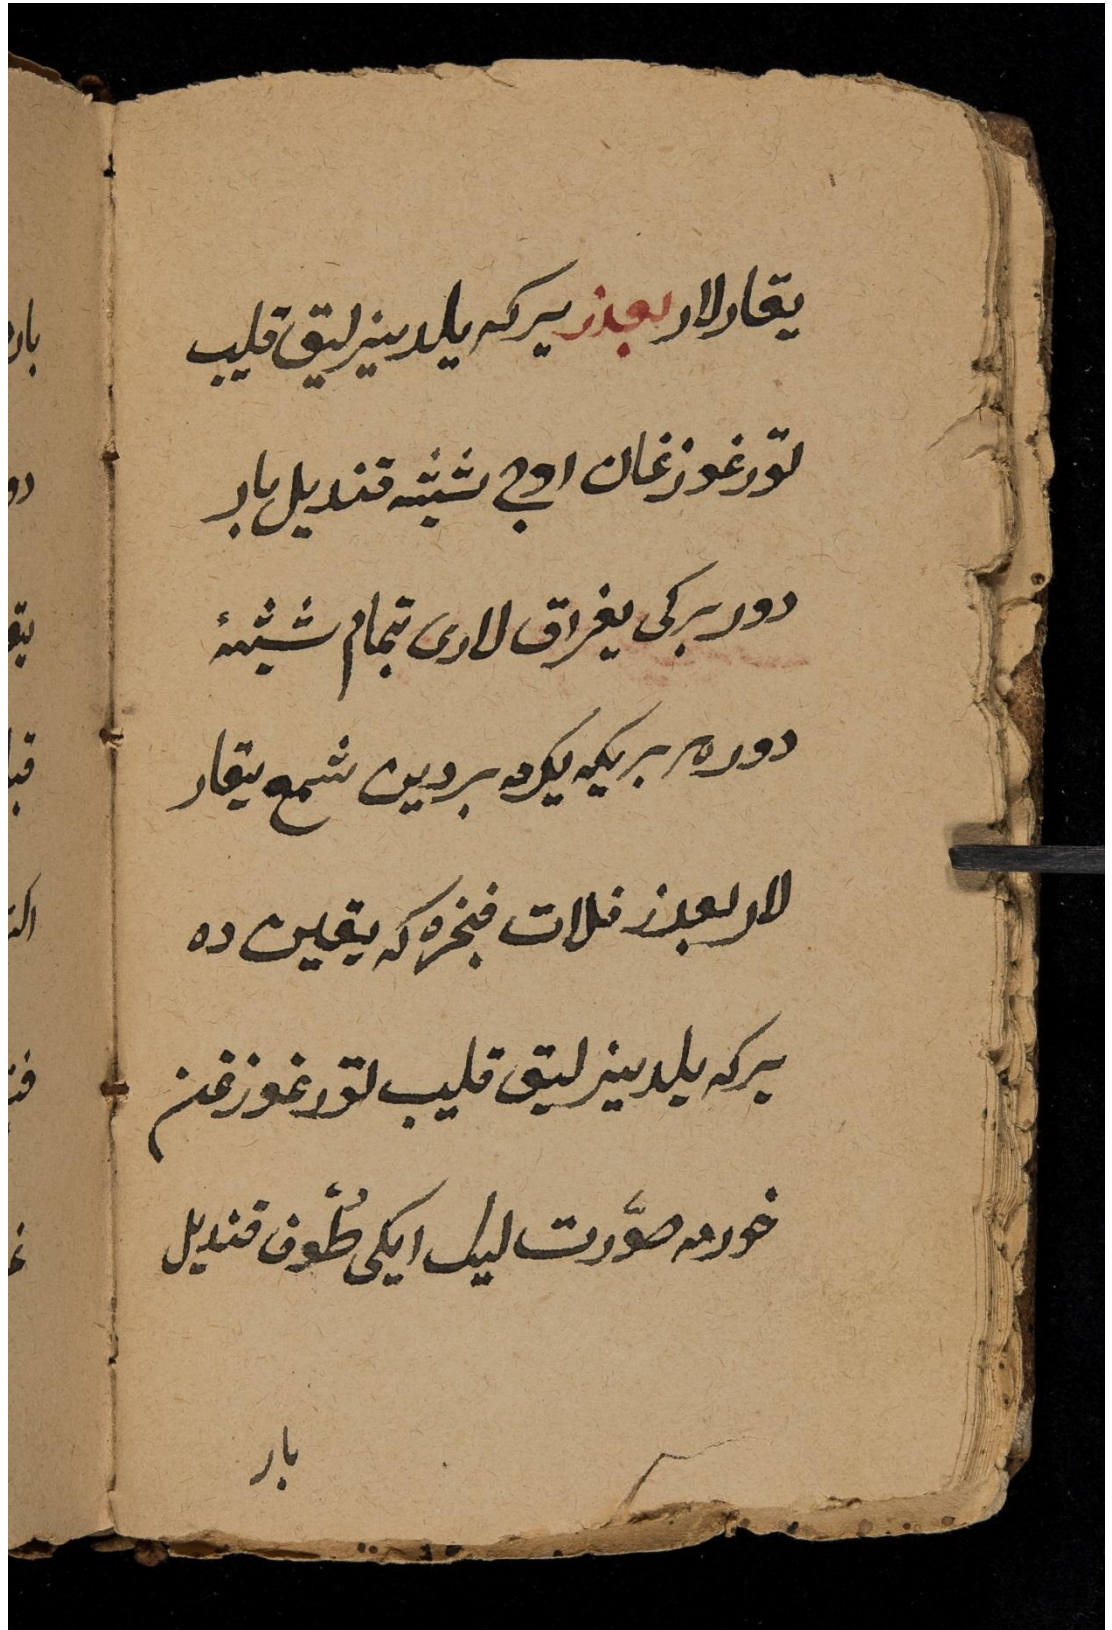 یقار لار بعدز یرکه یلدیزلیق قلیب
تورغوزغان اوچ ششه قندیل بار
دور برکی یغراق لاری تمام ششهٔ
دور هر بریکه یکرمه بردین شمع یقار
لار بعدز فلات فنجره که یقین ده
یرکه یلدیزلیق قلیب تورغوزغن
خورمه صوّرت لیک ایکی طُوف قندیل
بار